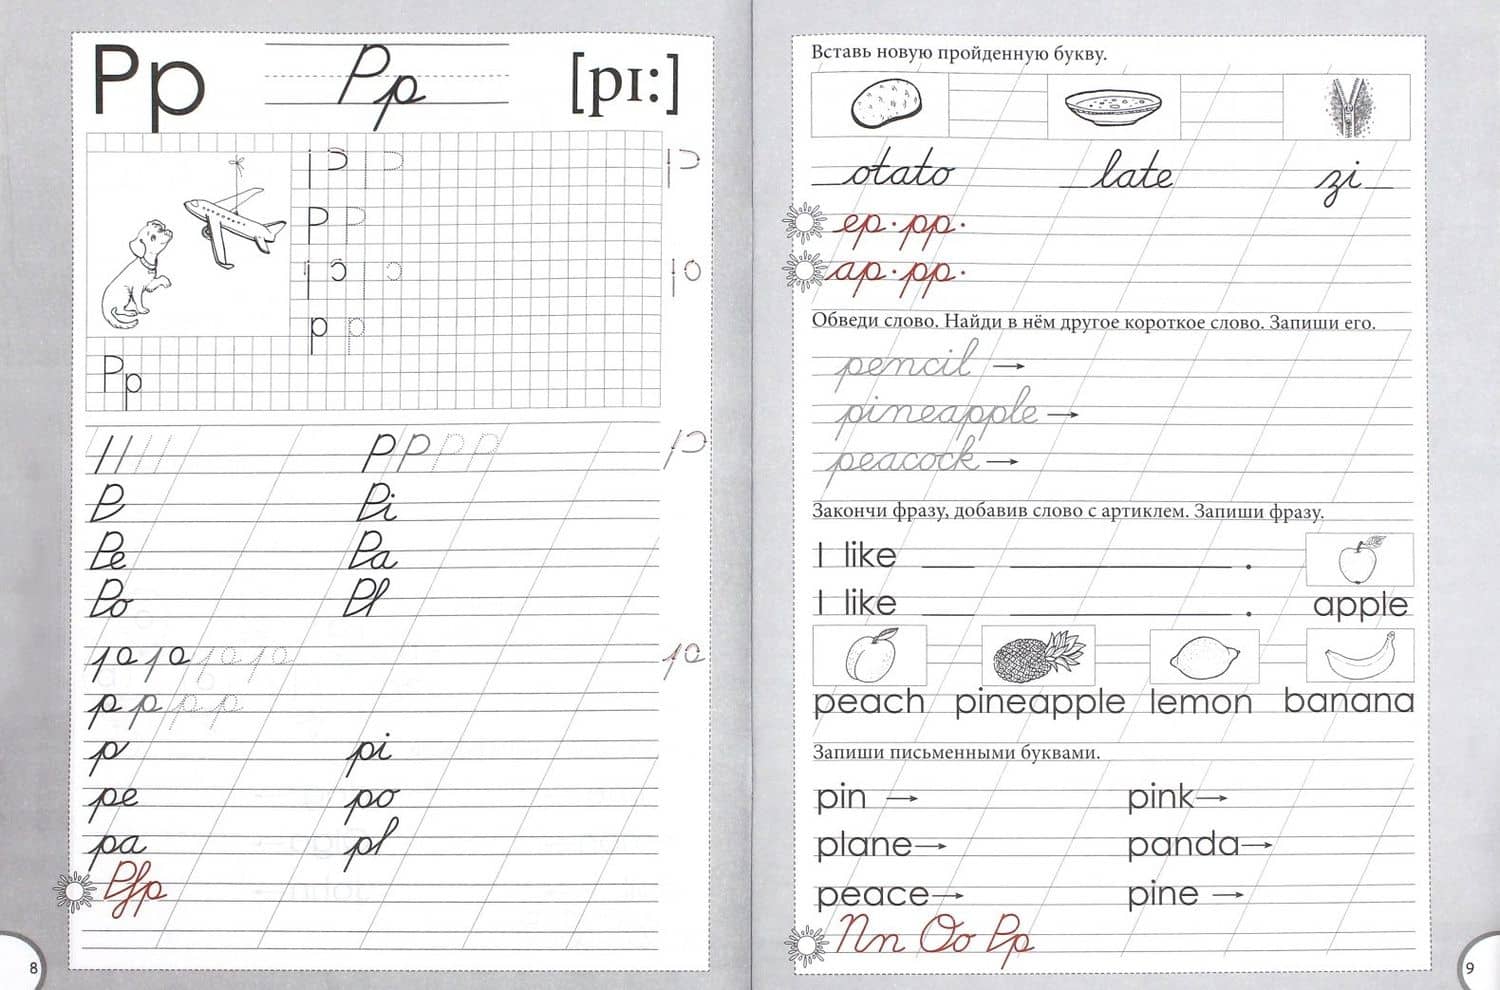 Pp Pp [pɪ:]
P P
p p
Pp
P P P P
P Pi
Pe Pa
Po Pl
p p p p
p pi
pe po
pa pl
Pfp
8
Вставь новую пройденную букву.
_otato _late zi_
ep·pp·
ap·pp·
Обведи слово. Найди в нём другое короткое слово. Запиши его.
pencil →
pineapple →
peacock →
Закончи фразу, добавив слово с артиклем. Запиши фразу.
I like ___ ___________ .
I like ___ ___________ . apple
peach pineapple lemon banana
Запиши письменными буквами.
pin → pink →
plane → panda →
peace → pine →
Nn Oo Pp
9